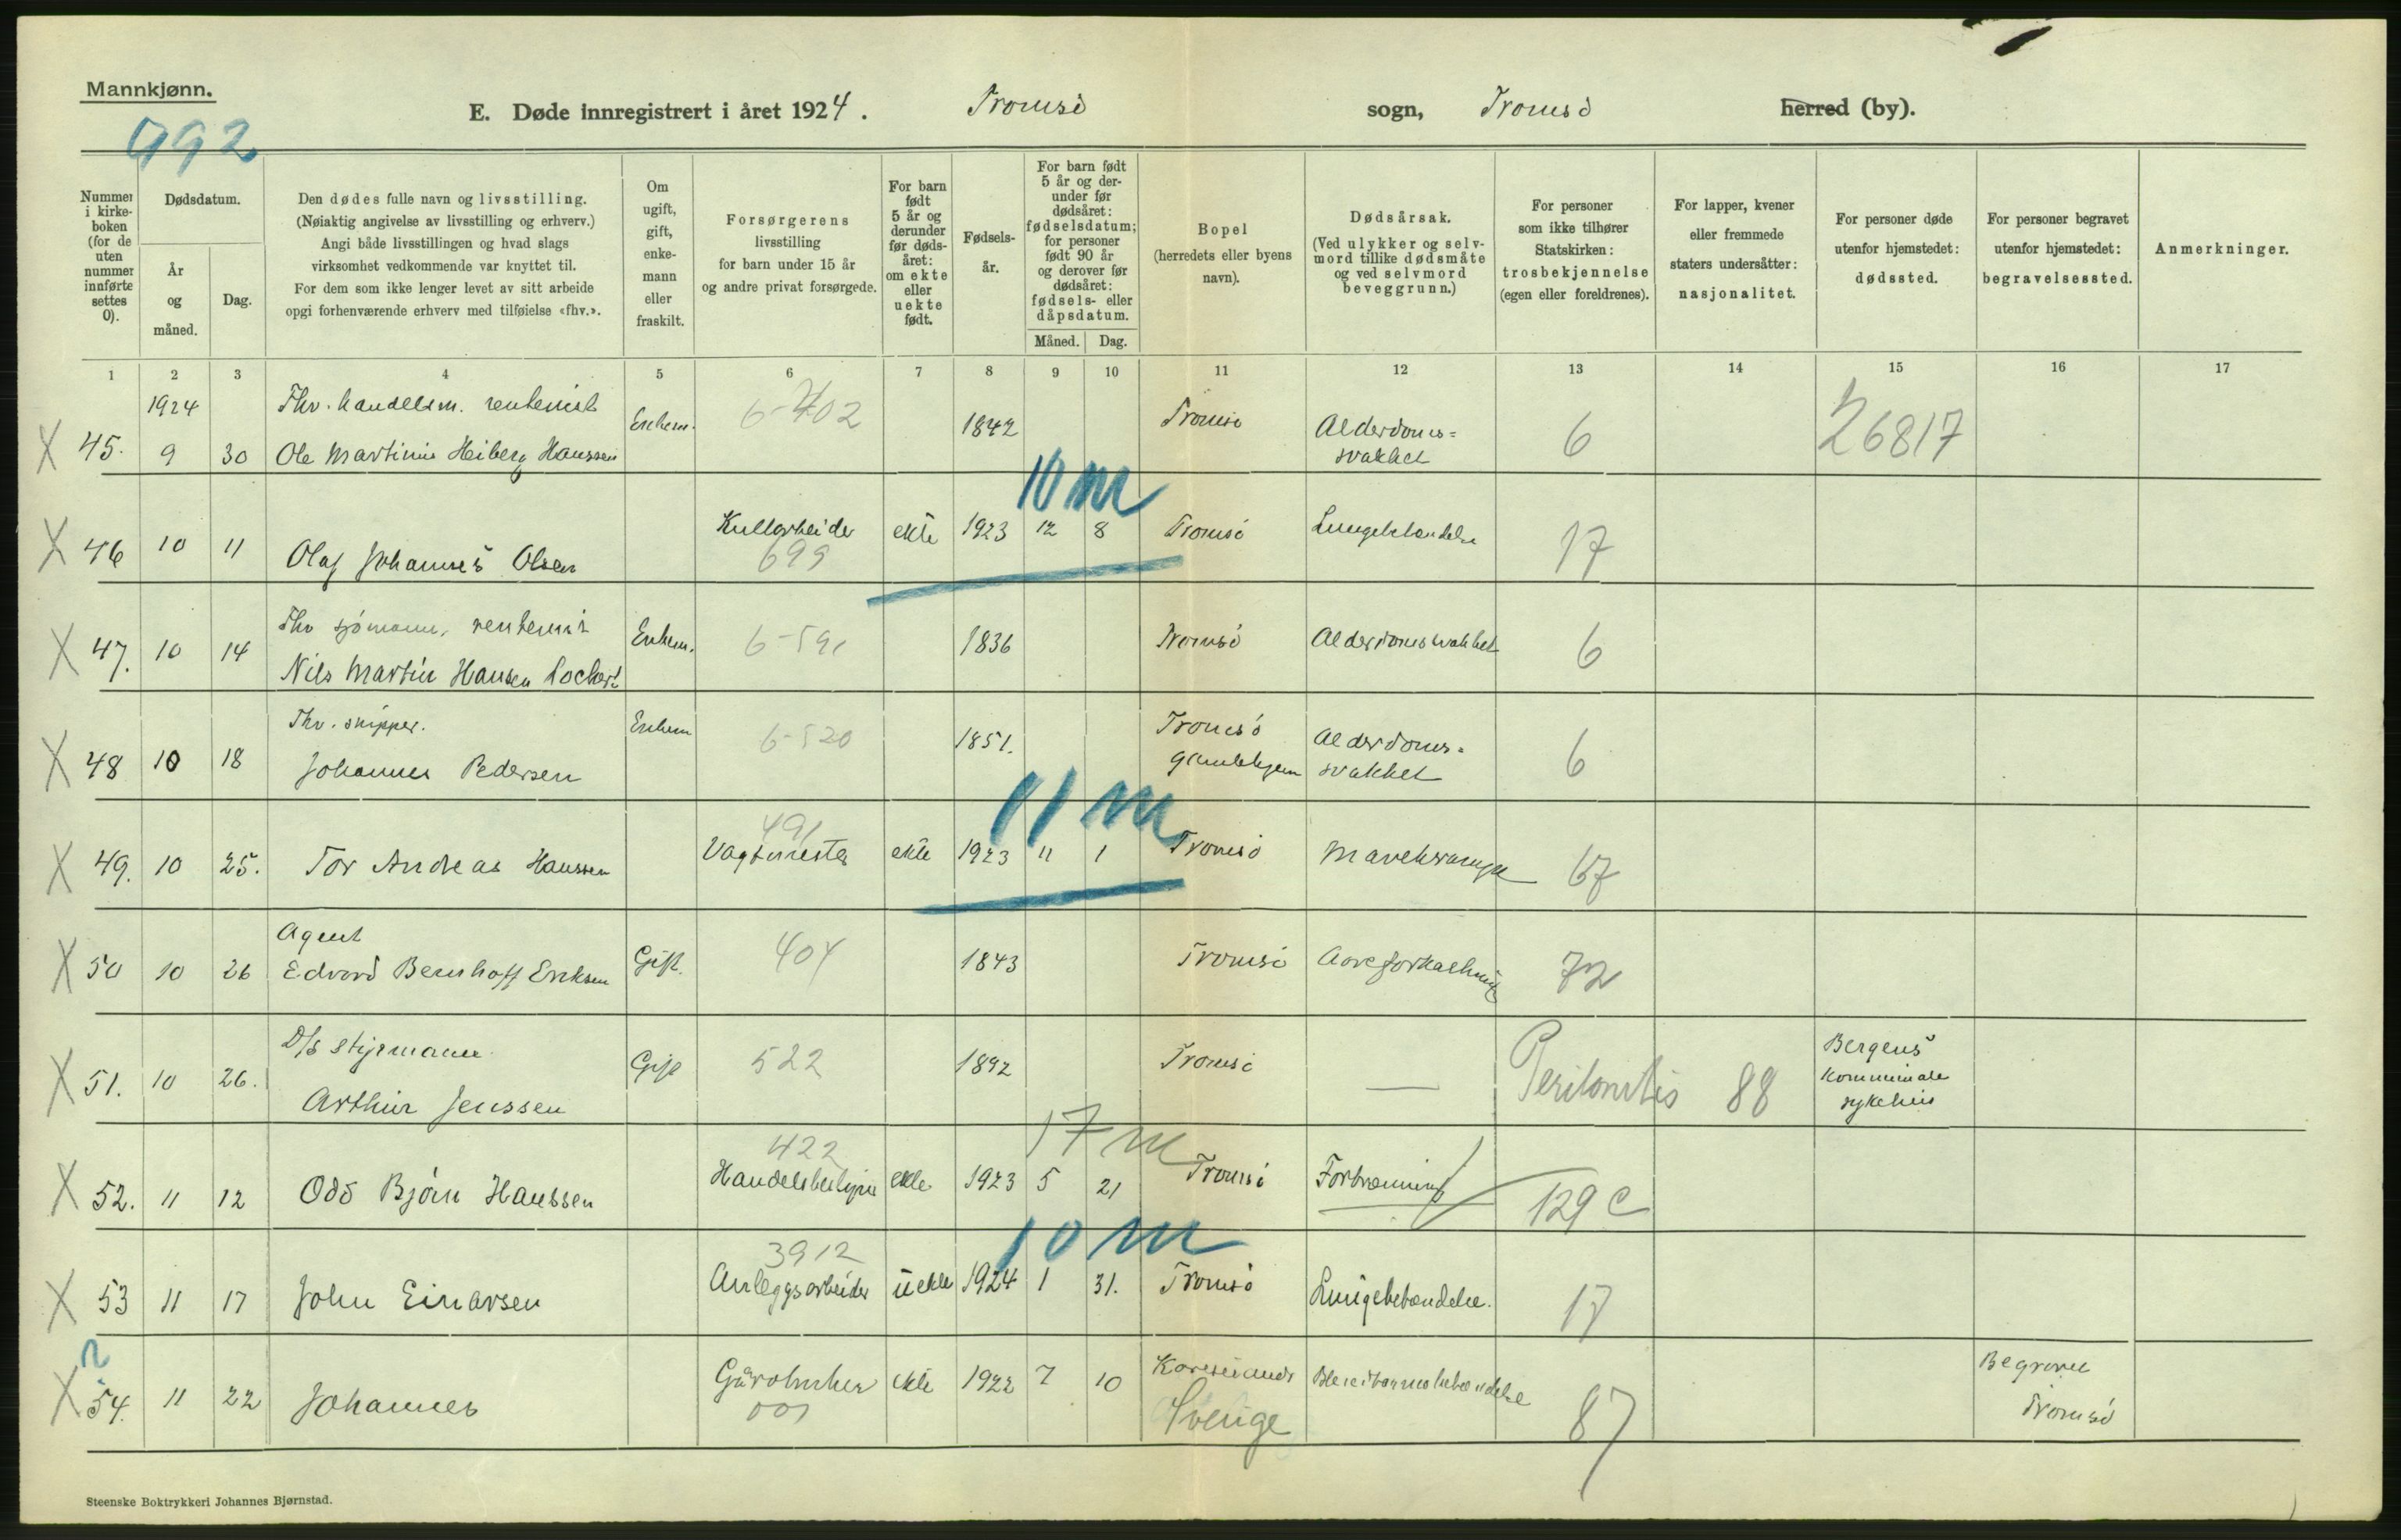 Mannkjønn.
E. Døde innregistrert i året 1924. Tromsø sogn, Tromsø herred (by).
992
Nummer i kirkeboken (for de uten nummer innførte settes 0).
Dødsdatum.
År og måned.
Dag.
Den dødes fulle navn og livsstilling.
(Nøiaktig angivelse av livsstilling og erhverv.)
Angi både livsstillingen og hvad slags
virksomhet vedkommende var knyttet til.
For dem som ikke lenger levet av sitt arbeide
opgi forhenværende erhverv med tilføielse «fhv.».
Om ugift, gift, enkemann eller fraskilt.
Forsørgerens livsstilling
for barn under 15 år
og andre privat forsørgede.
For barn født 5 år og derunder før dødsåret: om ekte eller uekte født.
Fødselsår.
For barn født 5 år og derunder før dødsåret: fødselsdatum; for personer født 90 år og derover før dødsåret: fødsels- eller dåpsdatum.
Måned. Dag.
Bopel
(herredets eller byens navn).
Dødsårsak.
(Ved ulykker og selvmord tillike dødsmåte og ved selvmord beveggrunn.)
For personer som ikke tilhører Statskirken:
trosbekjennelse
(egen eller foreldrenes).
For lapper, kvener eller fremmede staters undersåtter:
nasjonalitet.
For personer døde utenfor hjemstedet:
dødssted.
For personer begravet utenfor hjemstedet:
begravelsessted.
Anmerkninger.
1 2 3 4 5 6 7 8 9 10 11 12 13 14 15 16 17
1924 Fhv. handelsm. rentenist
X 45. 9 30 Ole Martinius Heiberg Hanssen Enkem. 6-402 1842 Tromsø Alderdoms= svakhet 6 26817
10 m
X 46 10 11 Olaf Johannes Olsen Kullarbeider 699 ekte 1923 12 8 Tromsø Lungebetændelse 17
Fhv sjømann, rentenist
X 47. 10 14 Nils Martin Hansen Lockert Enkem. 6-591 1836 Tromsø Alderdomssvakhet 6
Fhv. skipper.
X 48 10 18 Johannes Pedersen Enkem 6-520 1851. Tromsø Gamlehjem Alderdoms= svakhet 6
11 m
491
X 49. 10 25. Tor Andreas Hanssen Vagtmester ekte 1923 11 1 Tromsø Mavekrampe 67
Agent
X 50 10 26 Edvard Bernhoff Eriksen Gift. 404 1843 Tromsø Aareforkalkning 72
D/s styrmann
X 51. 10 26. Arthur Jenssen Gift 522 1892 Tromsø — Peritonitis 88 Bergens kommunale sykehus
17 m
422
X 52. 11 12 Odd Bjørn Hanssen Handelsbetjent ekte 1923 5 21 Tromsø Forbrenning 129 c
10 m
3912
X 53 11 17 John Einarsen Anleggsarbeider uekte 1924 1 31. Tromsø Lungebetændelse. 17
X 54. 11 22 Johannes Gårdbruker 001 ekte 1922 7 10 Karesuando Sverige Blindtarmsbetændelse 87 Begravet Tromsø
Steenske Boktrykkeri Johannes Bjørnstad.